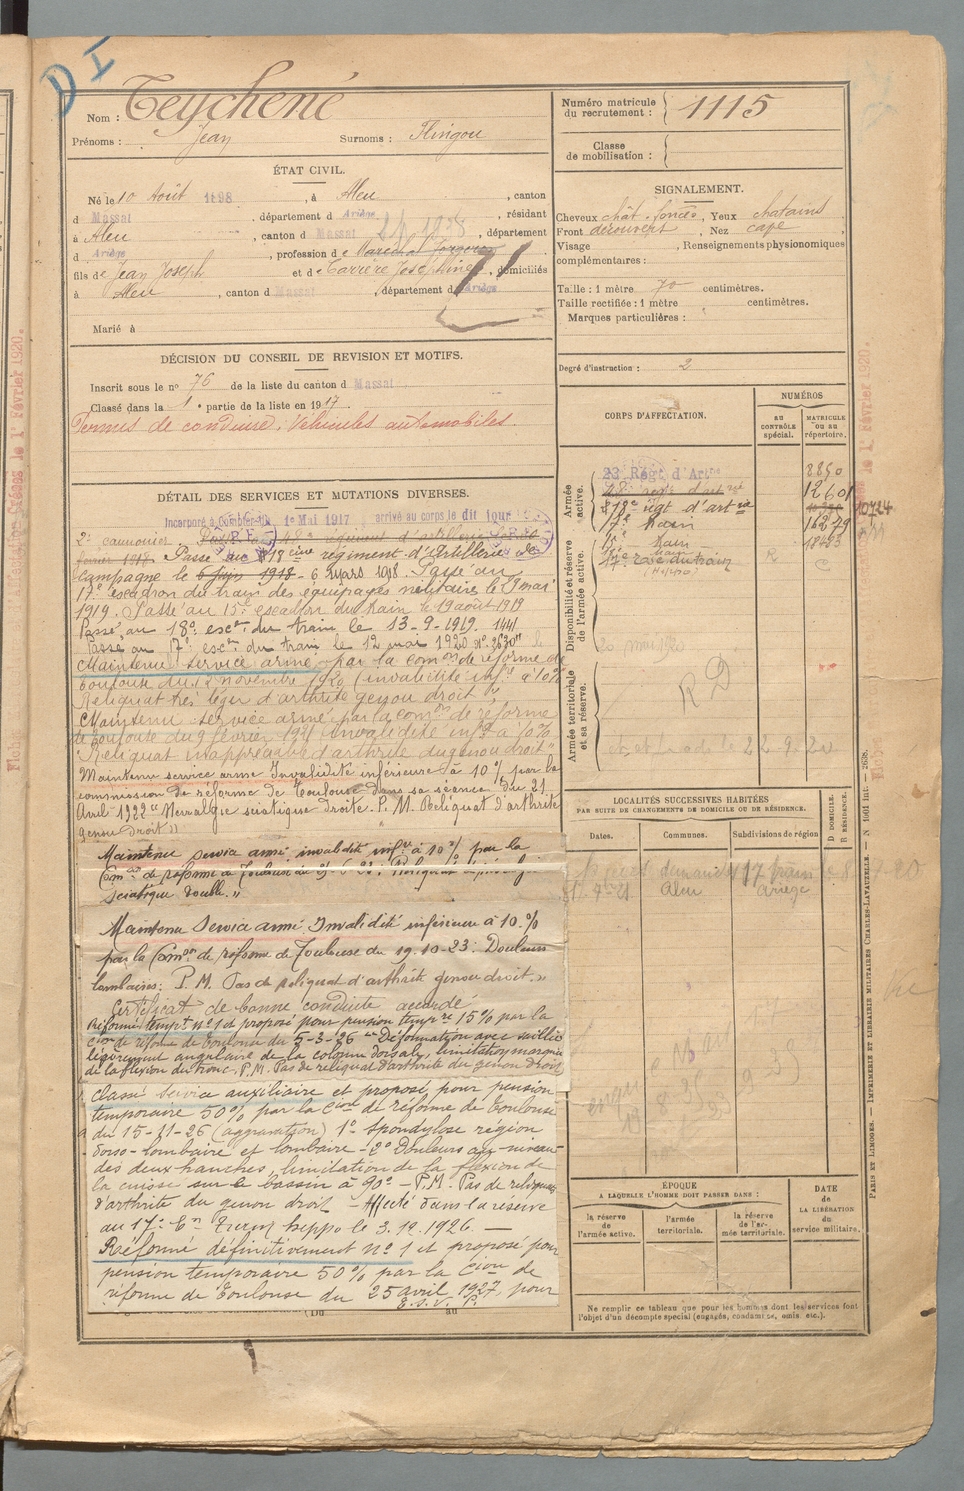 D I
Nom : Teychené
Prénoms : Jean Surnoms : Flingou
ÉTAT CIVIL.
Né le 10 Août 1898, à Aleu, canton
d Massat, département d Ariège, résidant
à Aleu, canton d Massat, département
d Ariège, profession de Maréchal forgeron
fils de Jean Joseph et de Carrère Joséphine, domiciliés
à Aleu, canton d Massat, département d Ariège
Marié à
DÉCISION DU CONSEIL DE REVISION ET MOTIFS.
Inscrit sous le nº 76 de la liste du canton d Massat
Classé dans la 1e partie de la liste en 1917
Permis de conduire. Véhicules automobiles.
DÉTAIL DES SERVICES ET MUTATIONS DIVERSES.
Incorporé à Compter du 1er Mai 1917 arrivé au corps le dit jour
2e canonnier. Passé au régiment d'artillerie le
février 1918 Passé au régiment d'Artillerie de
Campagne le 6 juin 1918 - 6 mars 1918. Passé au
17e escadron du train des équipages militaires le 9 mai
1919. Passé au 15e escadron du train le 19 août 1919
Passé au 18e escon du train le 13-9-1919. 1441
Passé au 17e escon du train le 12 mai 1920 Nº 2630
Maintenu service armé par la comon de réforme de
Toulouse du 12 novembre 1920 (invalidité infre à 10%
Reliquat très léger d'arthrite genou droit"
Maintenu service armé par la comon de réforme
de Toulouse du 9 février 1921 Invalidité infre à 10%
"Reliquat inappréciable d'arthrite du genou droit"
Maintenu service armé Invalidité inférieure à 10% par la
commission de réforme de Toulouse dans sa séance du 21
Avril 1922 "Névralgie sciatique droite. P.M. Reliquat d'arthrite
genou droit"
Maintenu service armé invalidité infre à 10% par la
Comon de réforme de Toulouse du
sciatique double."
Maintenu Service armé Invalidité inférieure à 10%
par la Comon de réforme de Toulouse du 19.10-23: Douleurs
lombaires: P.M. Pas de reliquat d'arthrite genou droit."
Certificat de bonne conduite accordé
Réformé tempre nº 1 et proposé pour pension tempre 15% par la
cion de réforme de Toulouse du 5-3-26 "Déformation avec saillie
légèrement angulaire de la colonne dorsale, limitation marquée
de la flexion du tronc. P.M. Pas de reliquat d'arthrite du genou droit
Classé service auxiliaire et proposé pour pension
temporaire 50% par la Cion de réforme de Toulouse
du 15-11-26 (aggravation) 1º Spondylose région
dorso-lombaire et lombaire - 2º Douleurs au niveau
des deux hanches, limitation de la flexion de
la cuisse sur le bassin à 90º - P.M. Pas de reliquat
d'arthrite du genou droit - Affecté dans la réserve
au 17e Con Train hippo le 3.12.1926. -
Réformé définitivement nº 1 et proposé pour
pension temporaire 50% par la Cion de
réforme de Toulouse du 25 avril 1927, pour
Du au
Numéro matricule
du recrutement : 1115
Classe
de mobilisation :
SIGNALEMENT.
Cheveux chât. foncés, Yeux chatains
Front découvert, Nez cave
Visage , Renseignements physionomiques
complémentaires :
Taille : 1 mètre 70 centimètres.
Taille rectifiée : 1 mètre centimètres.
Marques particulières :
Degré d'instruction : 2
CORPS D'AFFECTATION.
NUMÉROS
AU CONTRÔLE spécial.
MATRICULE OU AU répertoire.
Armée active.
23 Régt d'Artie 8850
régt d'art 12601
régt d'art ie 10724
17e train 16279
15e train
17e esc du train
R
C
Disponibilité et réserve de l'armée active.
20 mai 1920
R D
Armée territoriale et sa réserve.
22.9.20
LOCALITÉS SUCCESSIVES HABITÉES
PAR SUITE DE CHANGEMENTS DE DOMICILE OU DE RÉSIDENCE.
Dates. Communes. Subdivisions de région
D DOMICILE. R RÉSIDENCE.
17 train
Aleu Ariège
ÉPOQUE
A LAQUELLE L'HOMME DOIT PASSER DANS :
la réserve de l'armée active.
l'armée territoriale.
la réserve de l'armée territoriale.
DATE
de
LA LIBÉRATION
du
service militaire.
Ne remplir ce tableau que pour les hommes dont les services font
l'objet d'un décompte spécial (engagés, condamnés, omis, etc.).
PARIS ET LIMOGES. — IMPRIMERIE ET LIBRAIRIE MILITAIRES CHARLES-LAVAUZELLE. — N 1061 int. — 2638.